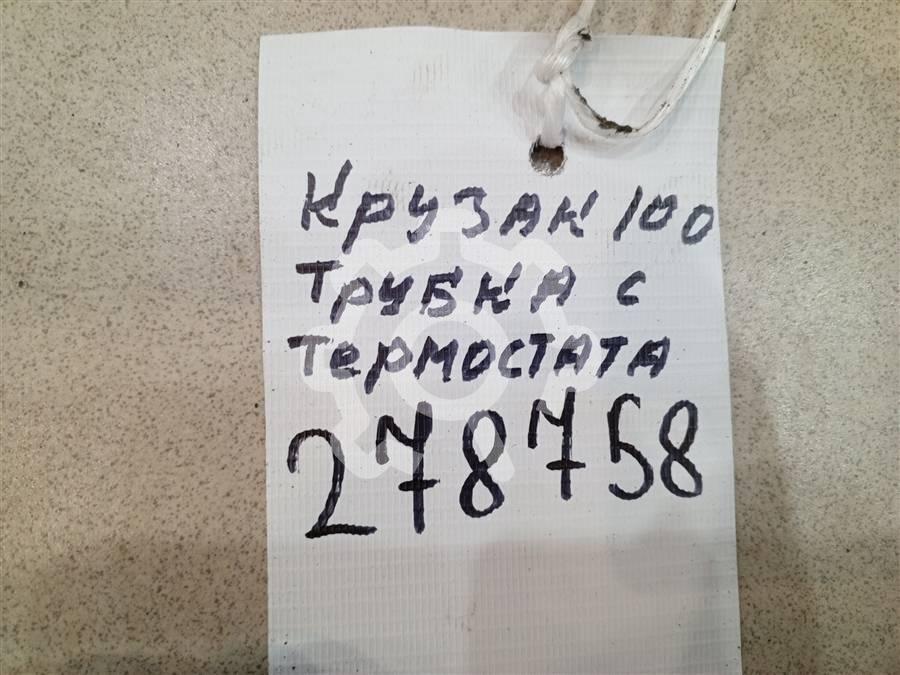 Крузак 100
Трубка с
термостата
278758